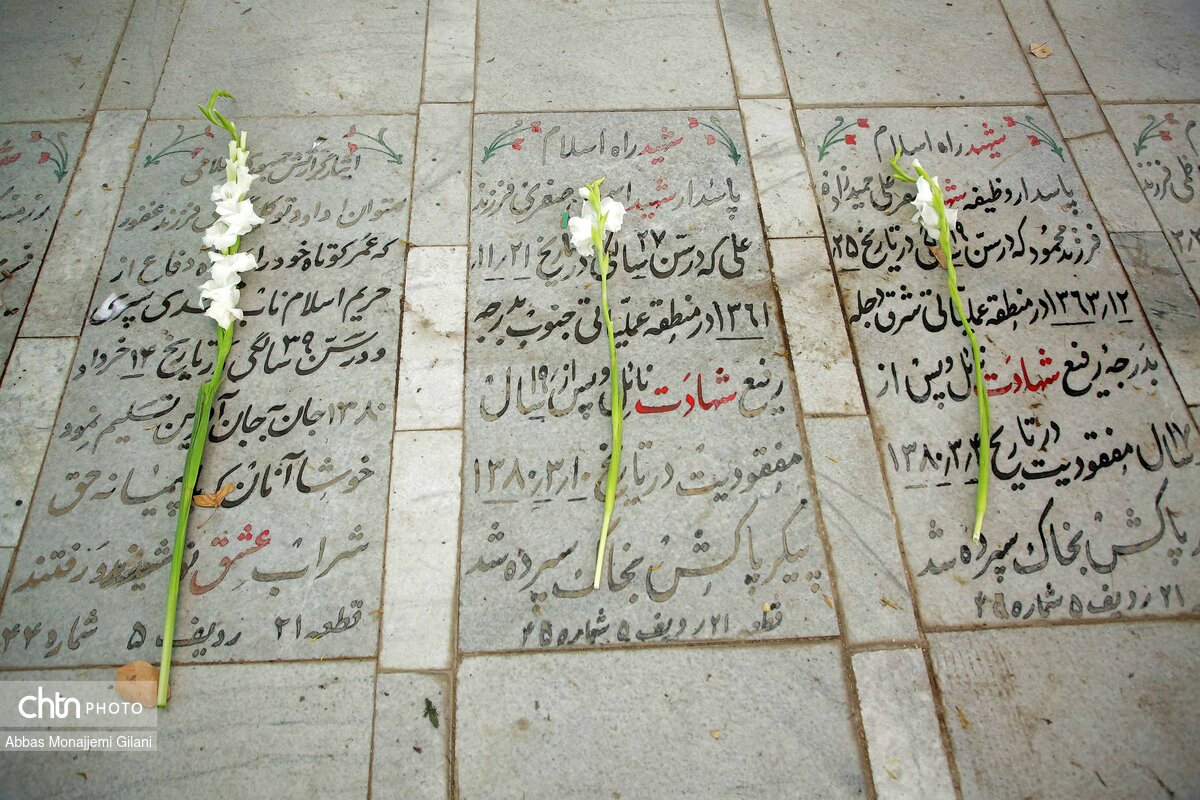 شهید راه اسلام
پاسدار وظیفه شهید علی حمیدزاده
فرزند محمود که در سن ۱۹ در تاریخ ۲۵
۱۳۶۳٫۱۲ در منطقه عملیاتی شرق دجله
بدرجه رفیع شهادت نائل و پس از
۱۷ سال مفقودیت در تاریخ ۱۳۸۰٫۳٫۴
پاکش بخاک سپرده شد
۲۱ ردیف ۵ شماره ۴۶
شهید راه اسلام
پاسدار شهید جعفری فرزند
علی که در سن ۲۷ سالگی در تاریخ ۲۱ ر ۱۱
۱۳۶۱ در منطقه عملیاتی جنوب بدرجه
رفیع شهادت نائل و پس از ۱۹ سال
مفقودیت در تاریخ ۱۰ ر ۳ ر ۱۳۸۰
پیکر پاکش بخاک سپرده شد
قطعه ۲۱ ردیف ۵ شماره ۴۵
ایثارگر ارتش جمهوری اسلامی
ستوان ۱ داود توکلی فرزند غفور
که عمر کوتاه خود را دفاع از
حریم اسلام ناب سپری
و در سن ۳۹ سالگی در تاریخ ۱۴ خرداد
۱۳۸۰ جان به جان آفرین تسلیم نمود
خوشا آنان که پیمانه حق
شراب عشق نوشیدند و رفتند
قطعه ۲۱ ردیف ۵ شماره ۴۴
chtn PHOTO
Abbas Monajjemi Gilani